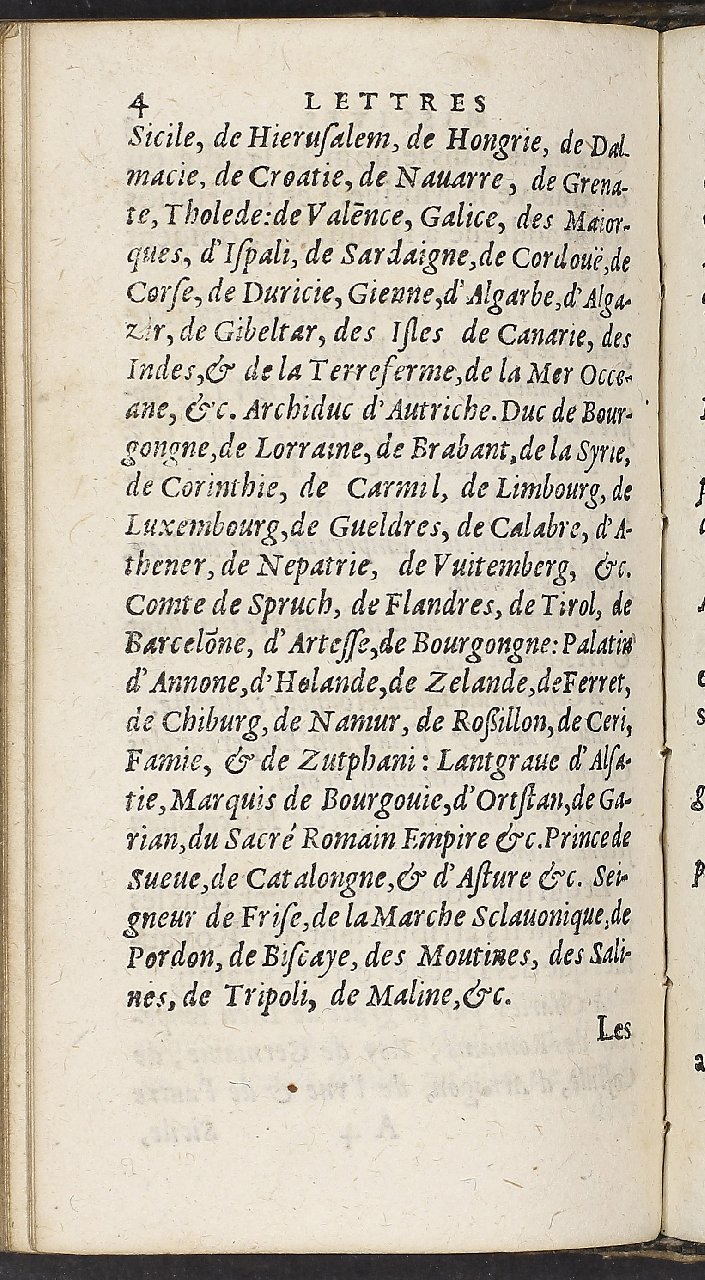 4 LETTRES
Sicile, de Hieruſalem, de Hongrie, de Dal-
macie, de Croatie, de Nauarre, de Grena-
te, Tholede: de Valēnce, Galice, des Maior-
ques, d'Iſpali, de Sardaigne, de Cordouë, de
Corſe, de Duricie, Gienne, d'Algarbe, d'Alga-
zir, de Gibeltar, des Iſles de Canarie, des
Indes, & de la Terreferme, de la Mer Occe-
ane, &c. Archiduc d'Autriche. Duc de Bour-
gongne, de Lorraine, de Brabant, de la Syrie,
de Corinthie, de Carmil, de Limbourg, de
Luxembourg, de Gueldres, de Calabre, d'A-
thener, de Nepatrie, de Vuitemberg, &c.
Comte de Spruch, de Flandres, de Tirol, de
Barcelōne, d'Arteſſe, de Bourgongne: Palatin
d'Annone, d'Holande, de Zelande, de Ferret,
de Chiburg, de Namur, de Roßillon, de Ceri,
Famie, & de Zutphani: Lantgraue d'Alſa-
tie, Marquis de Bourgouie, d'Ortſtan, de Ga-
rian, du Sacré Romain Empire &c. Prince de
Sueue, de Catalongne, & d'Aſture &c. Sei-
gneur de Friſe, de la Marche Sclauonique, de
Pordon, de Biſcaye, des Moutines, des Sali-
nes, de Tripoli, de Maline, &c.
Les